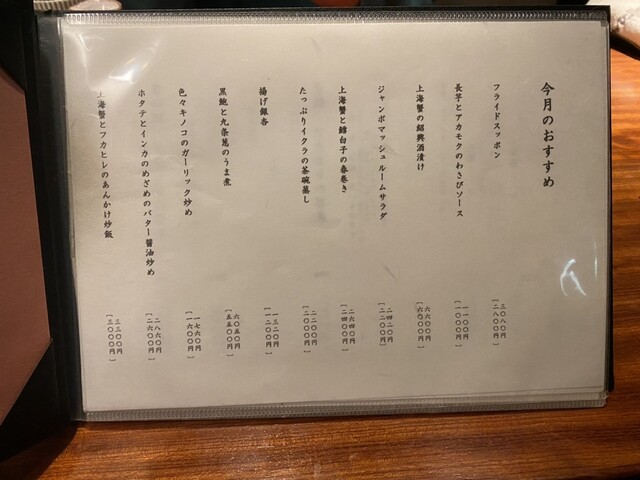 今月のおすすめ
フライドスッポン
三〇八〇円
[二八〇〇円]
長芋とアカモクのわさびソース
一一〇〇円
[一〇〇〇円]
上海蟹の紹興酒漬け
六六〇〇円
[六〇〇〇円]
ジャンボマッシュルームサラダ
二四二〇円
[二二〇〇円]
上海蟹と鱈白子の春巻き
二六四〇円
[二四〇〇円]
たっぷりイクラの茶碗蒸し
二二〇〇円
[二〇〇〇円]
揚げ銀杏
一三二〇円
[一二〇〇円]
黒鮑と九条葱のうま煮
六〇五〇円
[五五〇〇円]
色々キノコのガーリック炒め
一七六〇円
[一六〇〇円]
ホタテとインカのめざめのバター醤油炒め
二八六〇円
[二六〇〇円]
上海蟹とフカヒレのあんかけ炒飯
三三〇〇円
[三〇〇〇円]